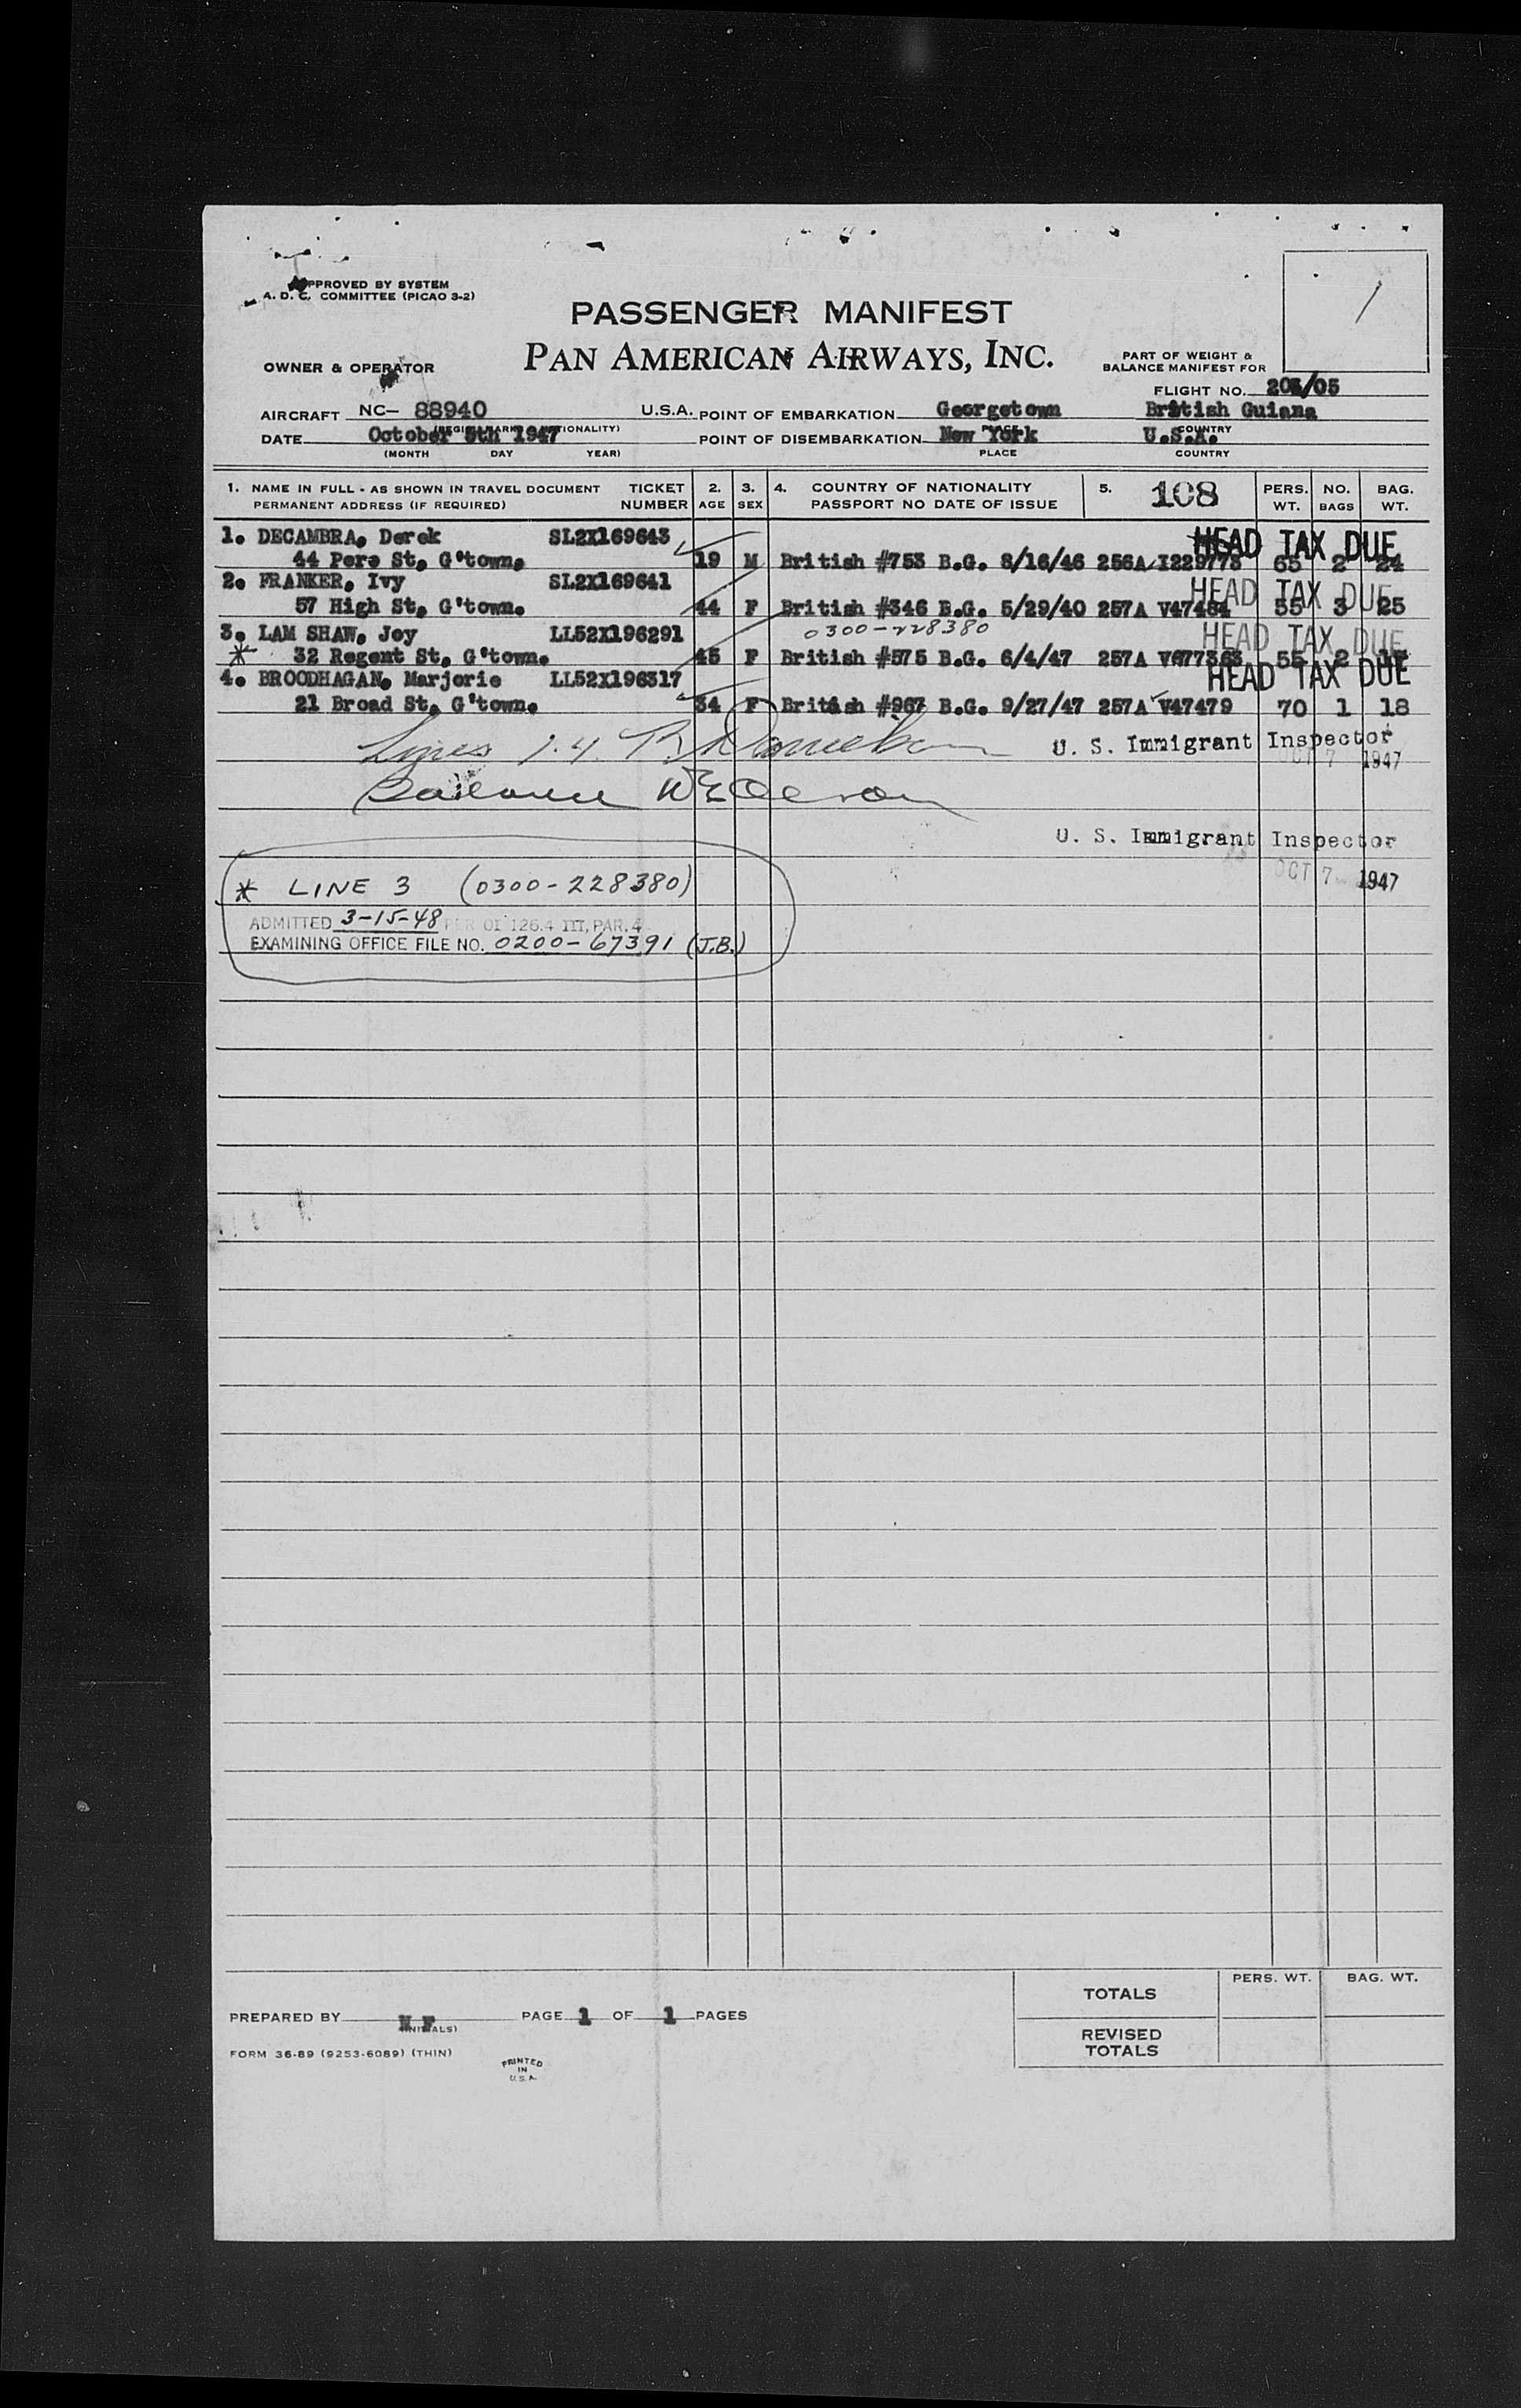 APPROVED BY SYSTEM
A. D. C. COMMITTEE (PICAO 3-2)
PASSENGER MANIFEST
PAN AMERICAN AIRWAYS, INC.
OWNER & OPERATOR
PART OF WEIGHT &
BALANCE MANIFEST FOR
FLIGHT NO. /05
AIRCRAFT NC- 88940 U.S.A. POINT OF EMBARKATION Georgetown British Guiana
DATE October 5th 1947 POINT OF DISEMBARKATION New York U.S.A.
(MONTH DAY YEAR) PLACE COUNTRY
1. NAME IN FULL - AS SHOWN IN TRAVEL DOCUMENT TICKET 2. 3. 4. COUNTRY OF NATIONALITY 5. 108 PERS. NO. BAG.
PERMANENT ADDRESS (IF REQUIRED) NUMBER AGE SEX PASSPORT NO DATE OF ISSUE WT. BAGS WT.
1. DECAMBRA, Derek SL2X169643 HEAD TAX DUE
44 Pere St, G'town. 19 M British #753 B.G. 8/16/46 256A I229778 65 2 24
2. FRANKER, Ivy SL2X169641 HEAD TAX DUE
57 High St, G'town. 44 F British #346 B.G. 5/29/40 257A V47484 55 3 25
3. LAM SHAW, Joy LL52X196291 0300-228380 HEAD TAX DUE
* 32 Regent St, G'town. 45 F British #575 B.G. 6/4/47 257A V677363 55 2
4. BROODHAGAN, Marjorie LL52X196317 HEAD TAX DUE
21 Broad St, G'town. 34 F British #967 B.G. 9/27/47 257A V47479 70 1 18
Lines 1.4. U. S. Immigrant Inspector
OCT 7 1947
Balance
U. S. Immigrant Inspector
OCT 7 1947
* LINE 3 (0300-228380)
ADMITTED 3-15-48 PER OI 126.4 III, PAR. 4
EXAMINING OFFICE FILE NO. 0200-67391 (J.B.)
PERS. WT. BAG. WT.
TOTALS
PREPARED BY M F PAGE 1 OF 1 PAGES
(INITIALS)
REVISED
TOTALS
FORM 36-89 (9253-6089) (THIN)
PRINTED
IN
U.S.A.